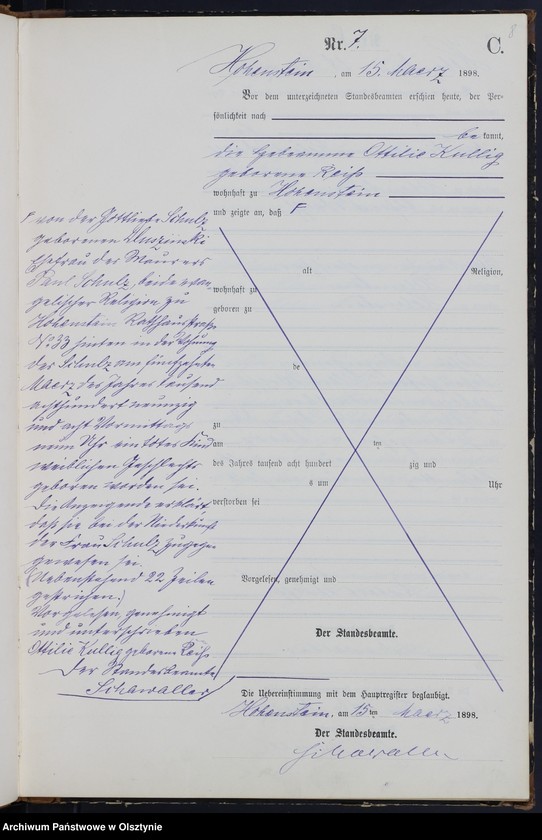 8
Nr. 7.
C.
Hohenstein, am 15. Maerz 1898.
Vor dem unterzeichneten Standesbeamten erschien heute, der Per-
sönlichkeit nach
be kannt,
die Hebeamme Ottilie Kullig
geborene Reiß
wohnhaft zu Hohenstein
und zeigte an, daß F
F von der Gottliebe Schulz
geborenen
Ehefrau des Maurers
Paul Schulz, beide evan-
gelischer Religion zu
Hohenstein Rathhausstraße
No 33 hinten in der Wohnung
der Schulz am fünfzehnten
Maerz des Jahres tausend
achthundert neunzig
und acht Vormittags
neun Uhr ein totes Kind
weiblichen Geschlechts
geboren worden sei.
Die Anzeigende erklärt,
daß sie bei der Niederkunft
der Frau Schulz zugegen
gewesen sei.
(Nebenstehend 22 Zeilen
gestrichen.)
Vorgelesen, genehmigt
und unterschrieben
Ottilie Kullig geborene Reiß
Der Standesbeamte
Schawaller
alt Religion,
wohnhaft zu
geboren zu
de
zu
am ten
des Jahres tausend acht hundert zig und
s um Uhr
verstorben sei
Vorgelesen, genehmigt und
Der Standesbeamte.
Die Uebereinstimmung mit dem Hauptregister beglaubigt.
Hohenstein, am 15 ten Maerz 1898.
Der Standesbeamte.
Schawaller
Archiwum Państwowe w Olsztynie